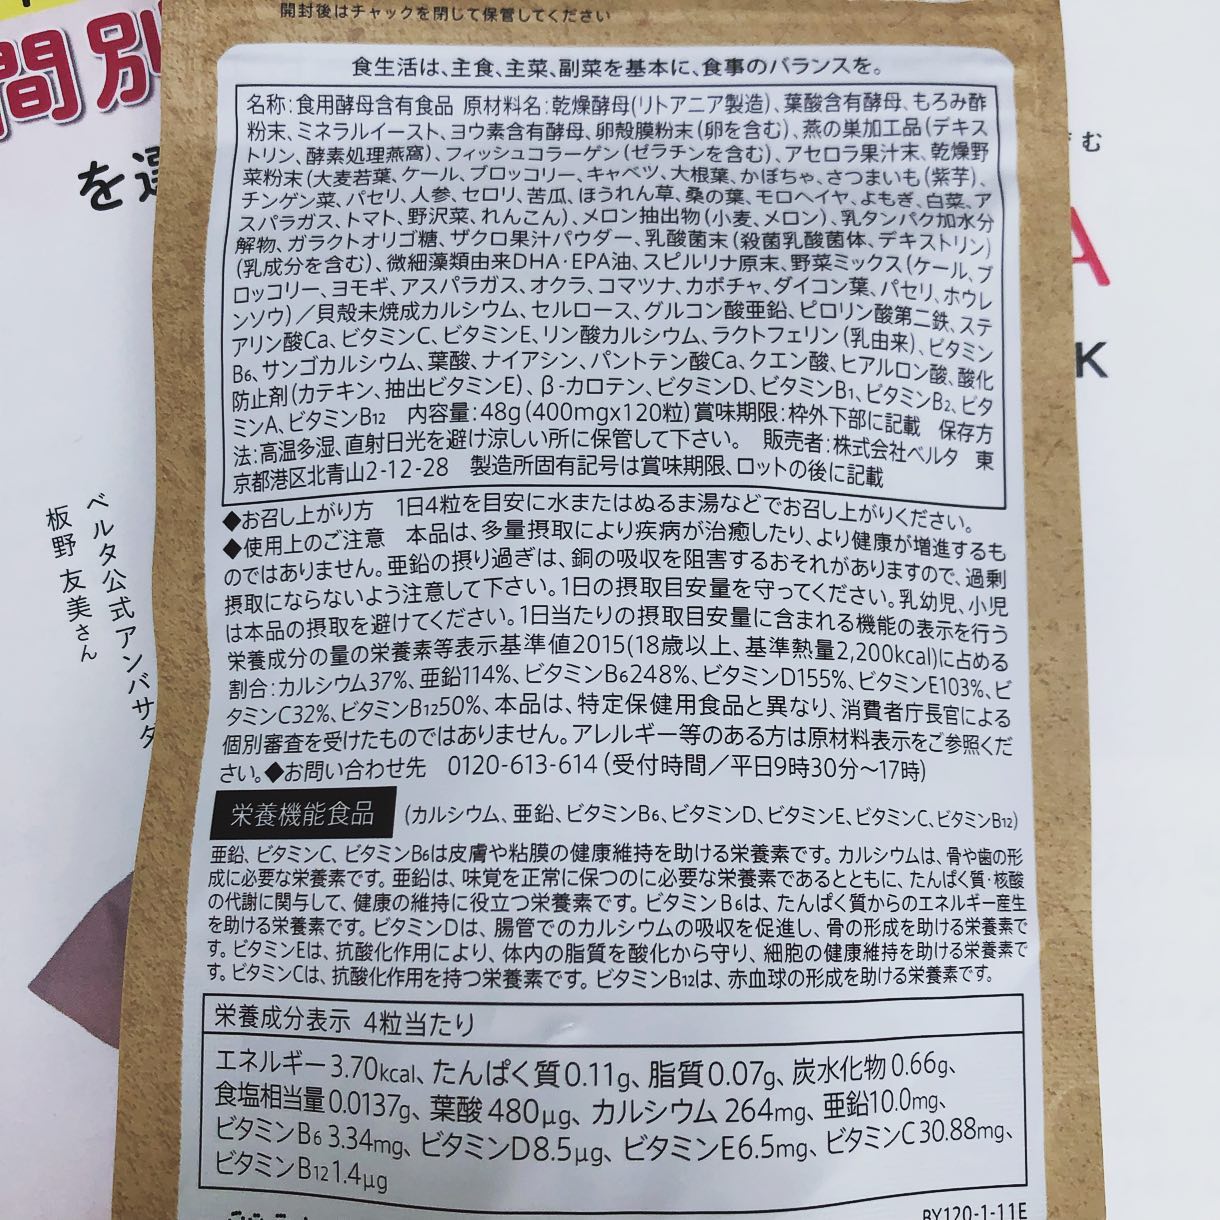 開封後はチャックを閉じて保管してください
間別
を
食生活は、主食、主菜、副菜を基本に、食事のバランスを。
名称：食用酵母含有食品 原材料名：乾燥酵母(リトアニア製造)、葉酸含有酵母、もろみ酢
粉末、ミネラルイースト、ヨウ素含有酵母、卵殻膜粉末(卵を含む)、燕の巣加工品(デキス
トリン、酵素処理燕窩)、フィッシュコラーゲン(ゼラチンを含む)、アセロラ果汁末、乾燥野
菜粉末(大麦若葉、ケール、ブロッコリー、キャベツ、大根葉、かぼちゃ、さつまいも(紫芋)、
チンゲン菜、パセリ、人参、セロリ、苦瓜、ほうれん草、桑の葉、モロヘイヤ、よもぎ、白菜、ア
スパラガス、トマト、野沢菜、れんこん)、メロン抽出物(小麦、メロン)、乳タンパク加水分
解物、ガラクトオリゴ糖、ザクロ果汁パウダー、乳酸菌末(殺菌乳酸菌体、デキストリン)
(乳成分を含む)、微細藻類由来DHA・EPA油、スピルリナ原末、野菜ミックス(ケール、ブ
ロッコリー、ヨモギ、アスパラガス、オクラ、コマツナ、カボチャ、ダイコン葉、パセリ、ホウレ
ンソウ)／貝殻未焼成カルシウム、セルロース、グルコン酸亜鉛、ピロリン酸第二鉄、ステ
アリン酸Ca、ビタミンC、ビタミンE、リン酸カルシウム、ラクトフェリン(乳由来)、ビタミン
B6、サンゴカルシウム、葉酸、ナイアシン、パントテン酸Ca、クエン酸、ヒアルロン酸、酸化
防止剤(カテキン、抽出ビタミンE)、β-カロテン、ビタミンD、ビタミンB1、ビタミンB2、ビタ
ミンA、ビタミンB12 内容量：48g(400mgx120粒)賞味期限：枠外下部に記載 保存方
法：高温多湿、直射日光を避け涼しい所に保管して下さい。 販売者：株式会社ベルタ 東
京都港区北青山2-12-28 製造所固有記号は賞味期限、ロットの後に記載
◆お召し上がり方 1日4粒を目安に水またはぬるま湯などでお召し上がりください。
◆使用上のご注意 本品は、多量摂取により疾病が治癒したり、より健康が増進するも
のではありません。亜鉛の摂り過ぎは、銅の吸収を阻害するおそれがありますので、過剰
摂取にならないよう注意して下さい。1日の摂取目安量を守ってください。乳幼児、小児
は本品の摂取を避けてください。1日当たりの摂取目安量に含まれる機能の表示を行う
栄養成分の量の栄養素等表示基準値2015(18歳以上、基準熱量2,200kcal)に占める
割合：カルシウム37%、亜鉛114%、ビタミンB6248%、ビタミンD155%、ビタミンE103%、ビ
タミンC32%、ビタミンB1250%、本品は、特定保健用食品と異なり、消費者庁長官による
個別審査を受けたものではありません。アレルギー等のある方は原材料表示をご参照くだ
さい。◆お問い合わせ先 0120-613-614(受付時間／平日9時30分～17時)
栄養機能食品 (カルシウム、亜鉛、ビタミンB6、ビタミンD、ビタミンE、ビタミンC、ビタミンB12)
亜鉛、ビタミンC、ビタミンB6は皮膚や粘膜の健康維持を助ける栄養素です。カルシウムは、骨や歯の形
成に必要な栄養素です。亜鉛は、味覚を正常に保つのに必要な栄養素であるとともに、たんぱく質・核酸
の代謝に関与して、健康の維持に役立つ栄養素です。ビタミンB6は、たんぱく質からのエネルギー産生
を助ける栄養素です。ビタミンDは、腸管でのカルシウムの吸収を促進し、骨の形成を助ける栄養素で
す。ビタミンEは、抗酸化作用により、体内の脂質を酸化から守り、細胞の健康維持を助ける栄養素で
す。ビタミンCは、抗酸化作用を持つ栄養素です。ビタミンB12は、赤血球の形成を助ける栄養素です。
栄養成分表示 4粒当たり
エネルギー3.70kcal、たんぱく質0.11g、脂質0.07g、炭水化物0.66g、
食塩相当量0.0137g、葉酸480μg、カルシウム264mg、亜鉛10.0mg、
ビタミンB6 3.34mg、ビタミンD8.5μg、ビタミンE6.5mg、ビタミンC30.88mg、
ビタミンB12 1.4μg
BY120-1-11E
ベルタ公式アンバサダ
板野 友美さん
む
A
K